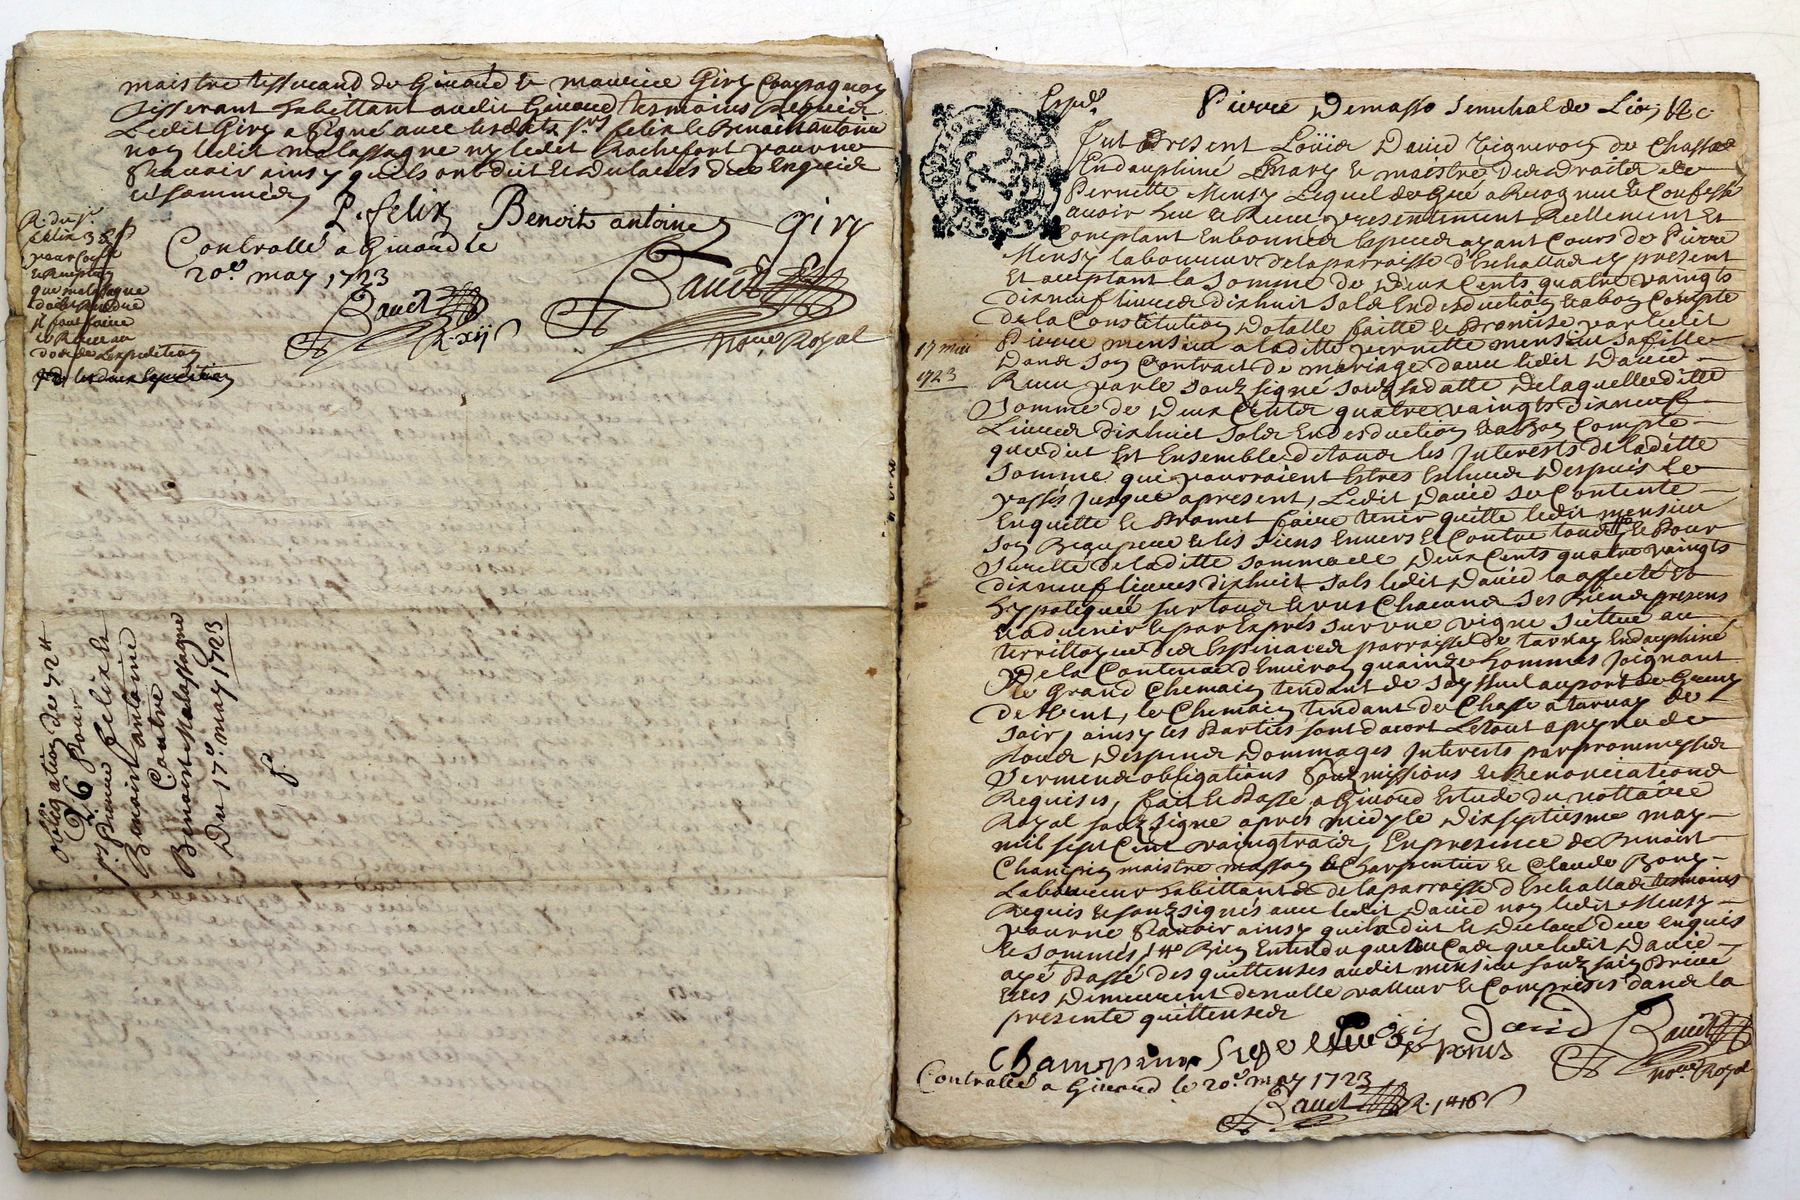 maistre tisserand de Givord & maurice Giry Compagnon
tisserant habittant audit Givord tesmoins Requis
Ledit Giry a signé avec lesdits srs felix & Benoist antoine
non ledit malassagne ny ledit Rochefort pour ne
Scavoir ainsy quils ont dit & declarés de ce Enquis
et sommés
P. felix Benoit antoine giry
Controllé a Givord le
20e may 1723
Baudt
R. xijs
Baudt
nore Royal
R. du sr
felix 3
pour
que malassagne
il faut faire
dos de Lexpedition
obligaon de 72ll
26 Pour
srs Pierre felix &
Benoist antoine
Contre
Benoist Malassagne
Du 17e may 1723
Pierre Demasso Senechal de Lion &c
fut Present Loüis David Vigneron de Chasse
En dauphiné Mary & maistre des droits de
Pernette Mensy Lequel de Gré a Recognue & Confessé
avoir heu & Receu presentement Reellement Et
Comptant En bonnes Especes ayant Cours de Pierre
Mensy laboureur de la parroisse d'Eschallas cy present
Et acceptant la Somme de deux Cents quatre vaingts
dix neuf livres dix huit Sols En desduction & a bon Compte
de la Constitution dotalle faitte & Promise par ledit
Pierre mensieu a laditte pernette mensieu sa fille
Dans Son Contract de mariage avec ledit David
17 mai
1723
Receu par le Soubz signé Soubz sa datte De laquelle ditte
Somme de Deux Cents quatre vaingts dix neuf
Livres dix huit Sols En desduction & a bon Compte
que dit Est Ensemble de tous les Interests de laditte
Somme qui pourroient Estres Escheus Despuis le
passés jusque a present, Ledit David se Contente
En quitte & Promet faire tenir quitte ledit mensieu
Son Beaupere & les siens Envers & Contre tous & Pour
Surette de laditte somme de Deux Cents quatre vaingts
dix neuf livres dix huit sols ledit David la affecté Et
hypotequée sur tous & uns Chacuns Ses Biens presens
& advenir & par Exprés sur une vigne scittue au
territoire des Espinaces parroisse de ternay En dauphiné
De la Contenue d'Environ quainze hommes Joignant
le Grand Chemain tendant de Seyssuel au port de Givors
de Vent, le Chemain tendant de Chasse a ternay de
soir, ainsy les Parties sont d'acort Le tout a peyne de
tous Despens Dommages Interests par prommesses
Sermens obligations Soubz missions & Renonciations
Requises, fait & Passé a Givord Estude du nottaire
Royal soubz signé apres midy le dix septiesme may
mil sept Cent vaingt trois, En presence de Benoist
Champin maistre masson & Charpentier & Claude Bony
Laboureur habittants de la parroisse d'Eschallas tesmoins
Requis & soubz signés avec ledit David non ledit Mensy
pour ne Scavoir ainsy quil a dit & declaré de ce enquis
& sommés, Bien Entendu que au Cas que ledit David
ayé Passé des quittenses audit mensieu soubz sain Privé
Elles Demeurent de nulle valleur & Comprises dans la
presente quittense
Champin Loüis David Bony
Baudt
nore Royal
Controllé a Givord le 20e may 1723
Baudt